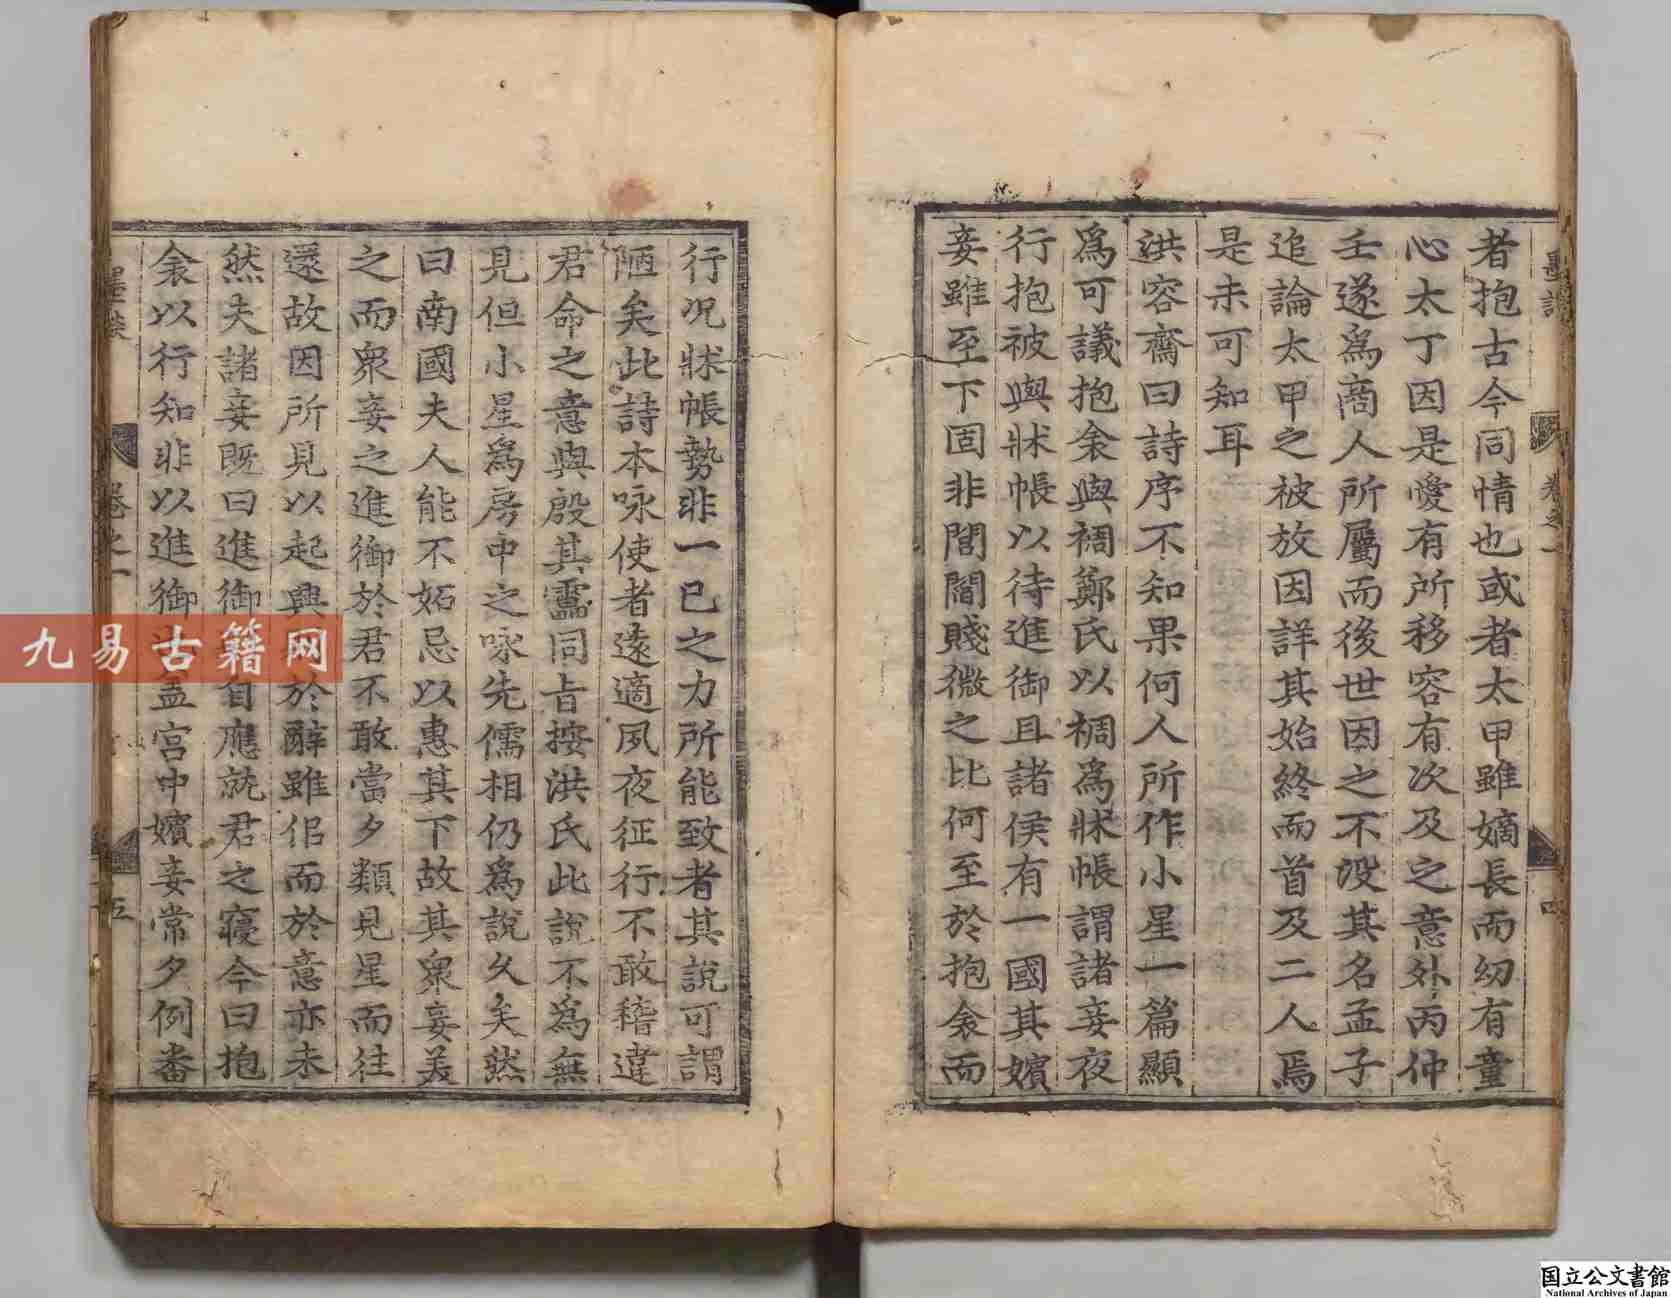 者抱古今同情也或者太甲雖嫡長而幼有童
心太丁因是愛有所移容有次及之意外丙仲
壬遂爲商人所屬而後世因之不没其名孟子
追論太甲之被放因詳其始終而首及二人焉
是未可知耳
洪容齋曰詩序不知果何人所作小星一篇顯
爲可議抱衾與裯鄭氏以裯爲牀帳謂諸妾夜
行抱被與牀帳以待進御且諸侯有一國其嬪
妾雖至下固非閭閻賤微之比何至於抱衾而
卷之一
四
行况牀帳勢非一己之力所能致者其說可謂
陋矣此詩本咏使者遠適夙夜征行不敢稽違
君命之意與殷其靁同旨按洪氏此說不爲無
見但小星爲房中之咏先儒相仍爲說久矣然
曰南國夫人能不妬忌以惠其下故其衆妾美
之而衆妾之進御於君不敢當夕類見星而往
還故因所見以起興 於辭雖侣而於意亦未
然夫諸妾既曰進御 自應就君之寢今曰抱
衾以行知非以進御 盖宫中嬪妾常夕例畨
墨談
卷之一
五
九易古籍网
国立公文書館
National Archives of Japan